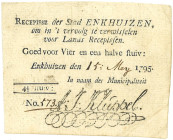 RECEPISSE der Stad ENKHUIZEN,
om in 't vervolg te verwisselen
voor Lands Recepissen.
Goed voor Vier en een halve stuiv:
Enkhuizen den 15: May, 1795.
In naam der Municipaliteit
4½ stuiv:
No.